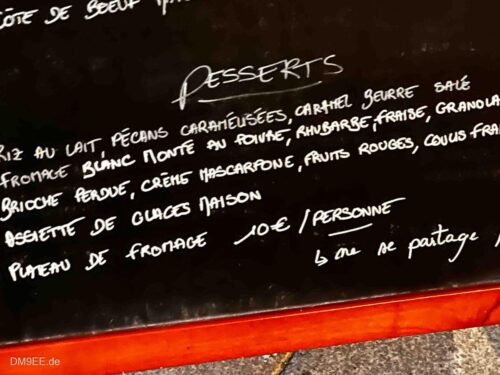 CÔTE DE BOEUF
DESSERTS
RIZ AU LAIT, PÉCANS CARAMÉLISÉES, CARAMEL BEURRE SALÉ
FROMAGE BLANC MONTÉ AU POIVRE, RHUBARBE, FRAISE, GRANOLA
BRIOCHE PERDUE, CRÈME MASCARPONE, FRUITS ROUGES, COULIS FRA
ASSIETTE DE GLACES MAISON
PLATEAU DE FROMAGE 10€ / PERSONNE
↳ ne se partage
DM9EE.de